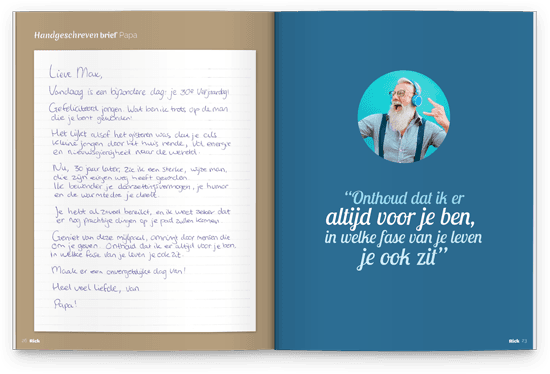 Handgeschreven brief Papa
Lieve Max,
Vandaag is een bijzondere dag: je 30e verjaardag!
Gefeliciteerd jongen. Wat ben ik trots op de man
die je bent geworden!
Het lijkt alsof het gisteren was dat je als
kleine jongen door het huis rende, vol energie
en nieuwsgierigheid naar de wereld.
Nu, 30 jaar later, zie ik een sterke, wijze man,
die zijn eigen weg heeft gevonden.
Ik bewonder je doorzettingsvermogen, je humor
en de warmte die je deelt.
Je hebt al zoveel bereikt, en ik weet zeker dat
er nog prachtige dingen op je pad zullen komen.
Geniet van deze mijlpaal, omring door mensen die
om je geven. Onthoud dat ik er altijd voor je ben,
in welke fase van je leven je ook zit.
Maak er een onvergetelijke dag van!
Heel veel liefde, van
Papa!
Rick
“Onthoud dat ik er
altijd voor je ben,
in welke fase van je leven
je ook zit”
Rick